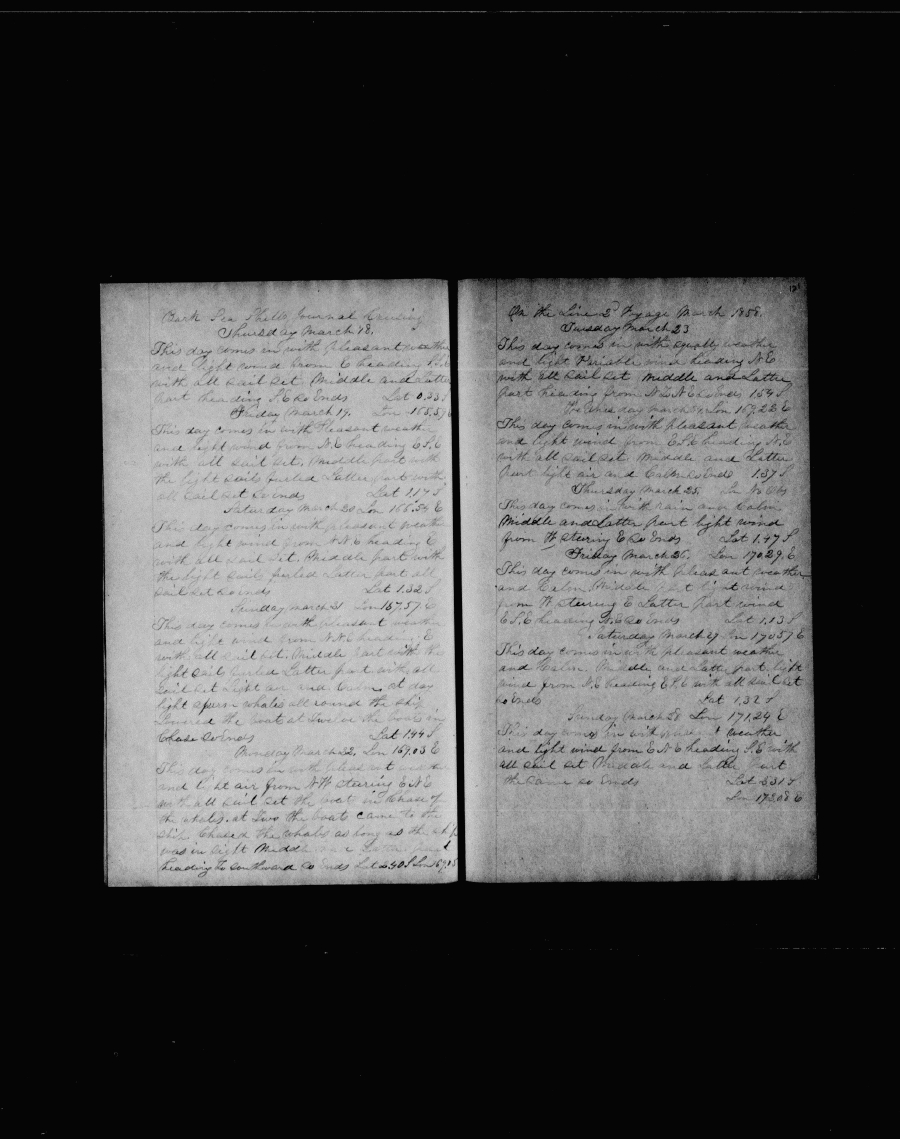 Bark Sea Shells Journal Cruising
Thursday March 18.
This day comes in with pleasant weather
and light wind from E heading
with all sail set Middle and Latter
part heading S.E So Ends Lat 0,23 S
Friday March 19. Lon 165,59 E
This day comes in with Pleasant weather
and light wind from N.E heading E S.E
with all sail set. Middle part with
the light sails furled Latter Part with
all Sail set So ends Lat 1,17 S
Saturday March 20 Lon 166,54 E
This day comes in with pleasant weather
and light wind from N.N.E heading E
with all sail set. Middle part with
the light sails furled Latter part all
sail set So ends Lat 1,32 S
Sunday March 21 Lon 167,57 E
This day comes in with pleasant weather
and light wind from N.N.E heading E
with all sail set. Middle Part with the
light sail furled Latter part with all
sail set Light air and Calm. at day
light sperm whales all round the ship
Lowered the boat at Twelve the boats in
Chase So ends Lat 1,44 S
Monday March 22. Lon 169,03 E
This day comes in with pleasant weather
and light air from N.W steering E N E
with all sail set the boat in Chase of
the whales. at Two the boats came to the
ship Chased the whales as long as the ship
was in sight Middle and Latter part
heading to Southward So Ends Lat 2,40 S Lon 169,
On the Line 2d Voyage March 1858.
Tuesday March 23
This day comes in with squally weather
and light Variable wind heading N.E
with all sail set Middle and Latter
part heading from N to N E So Ends 1,54 S
Wednesday March 24 Lon 169,22 E
This day comes in with pleasant weather
and light wind from E S.E heading N.E
with all sail set Middle and Latter
Part light air and Calm So Ends 1,37 S
Thursday March 25. Lon No Obs
This day comes in with rain and Calm
Middle and Latter part light wind
from W steering E So Ends Lat 1,47 S
Friday March 26. Lon 170,29, E
This day comes in with pleasant weather
and Calm Middle part light wind
from W steering E Latter Part wind
E S.E heading N.E So ends Lat 1,13 S
Saturday March 27 Lon 170,57 E
This day comes in with pleasant weather
and Calm. Middle and Latter part light
wind from N.E heading E S.E with all sail set
So Ends Lat 1,32 S
Sunday March 28 Lon 171,24 E
This day comes in with pleasant weather
and light wind from E N.E heading S.E with
all sail set Middle and Latter Part
the same so Ends Lat 3,31 S
Lon 173,08 E